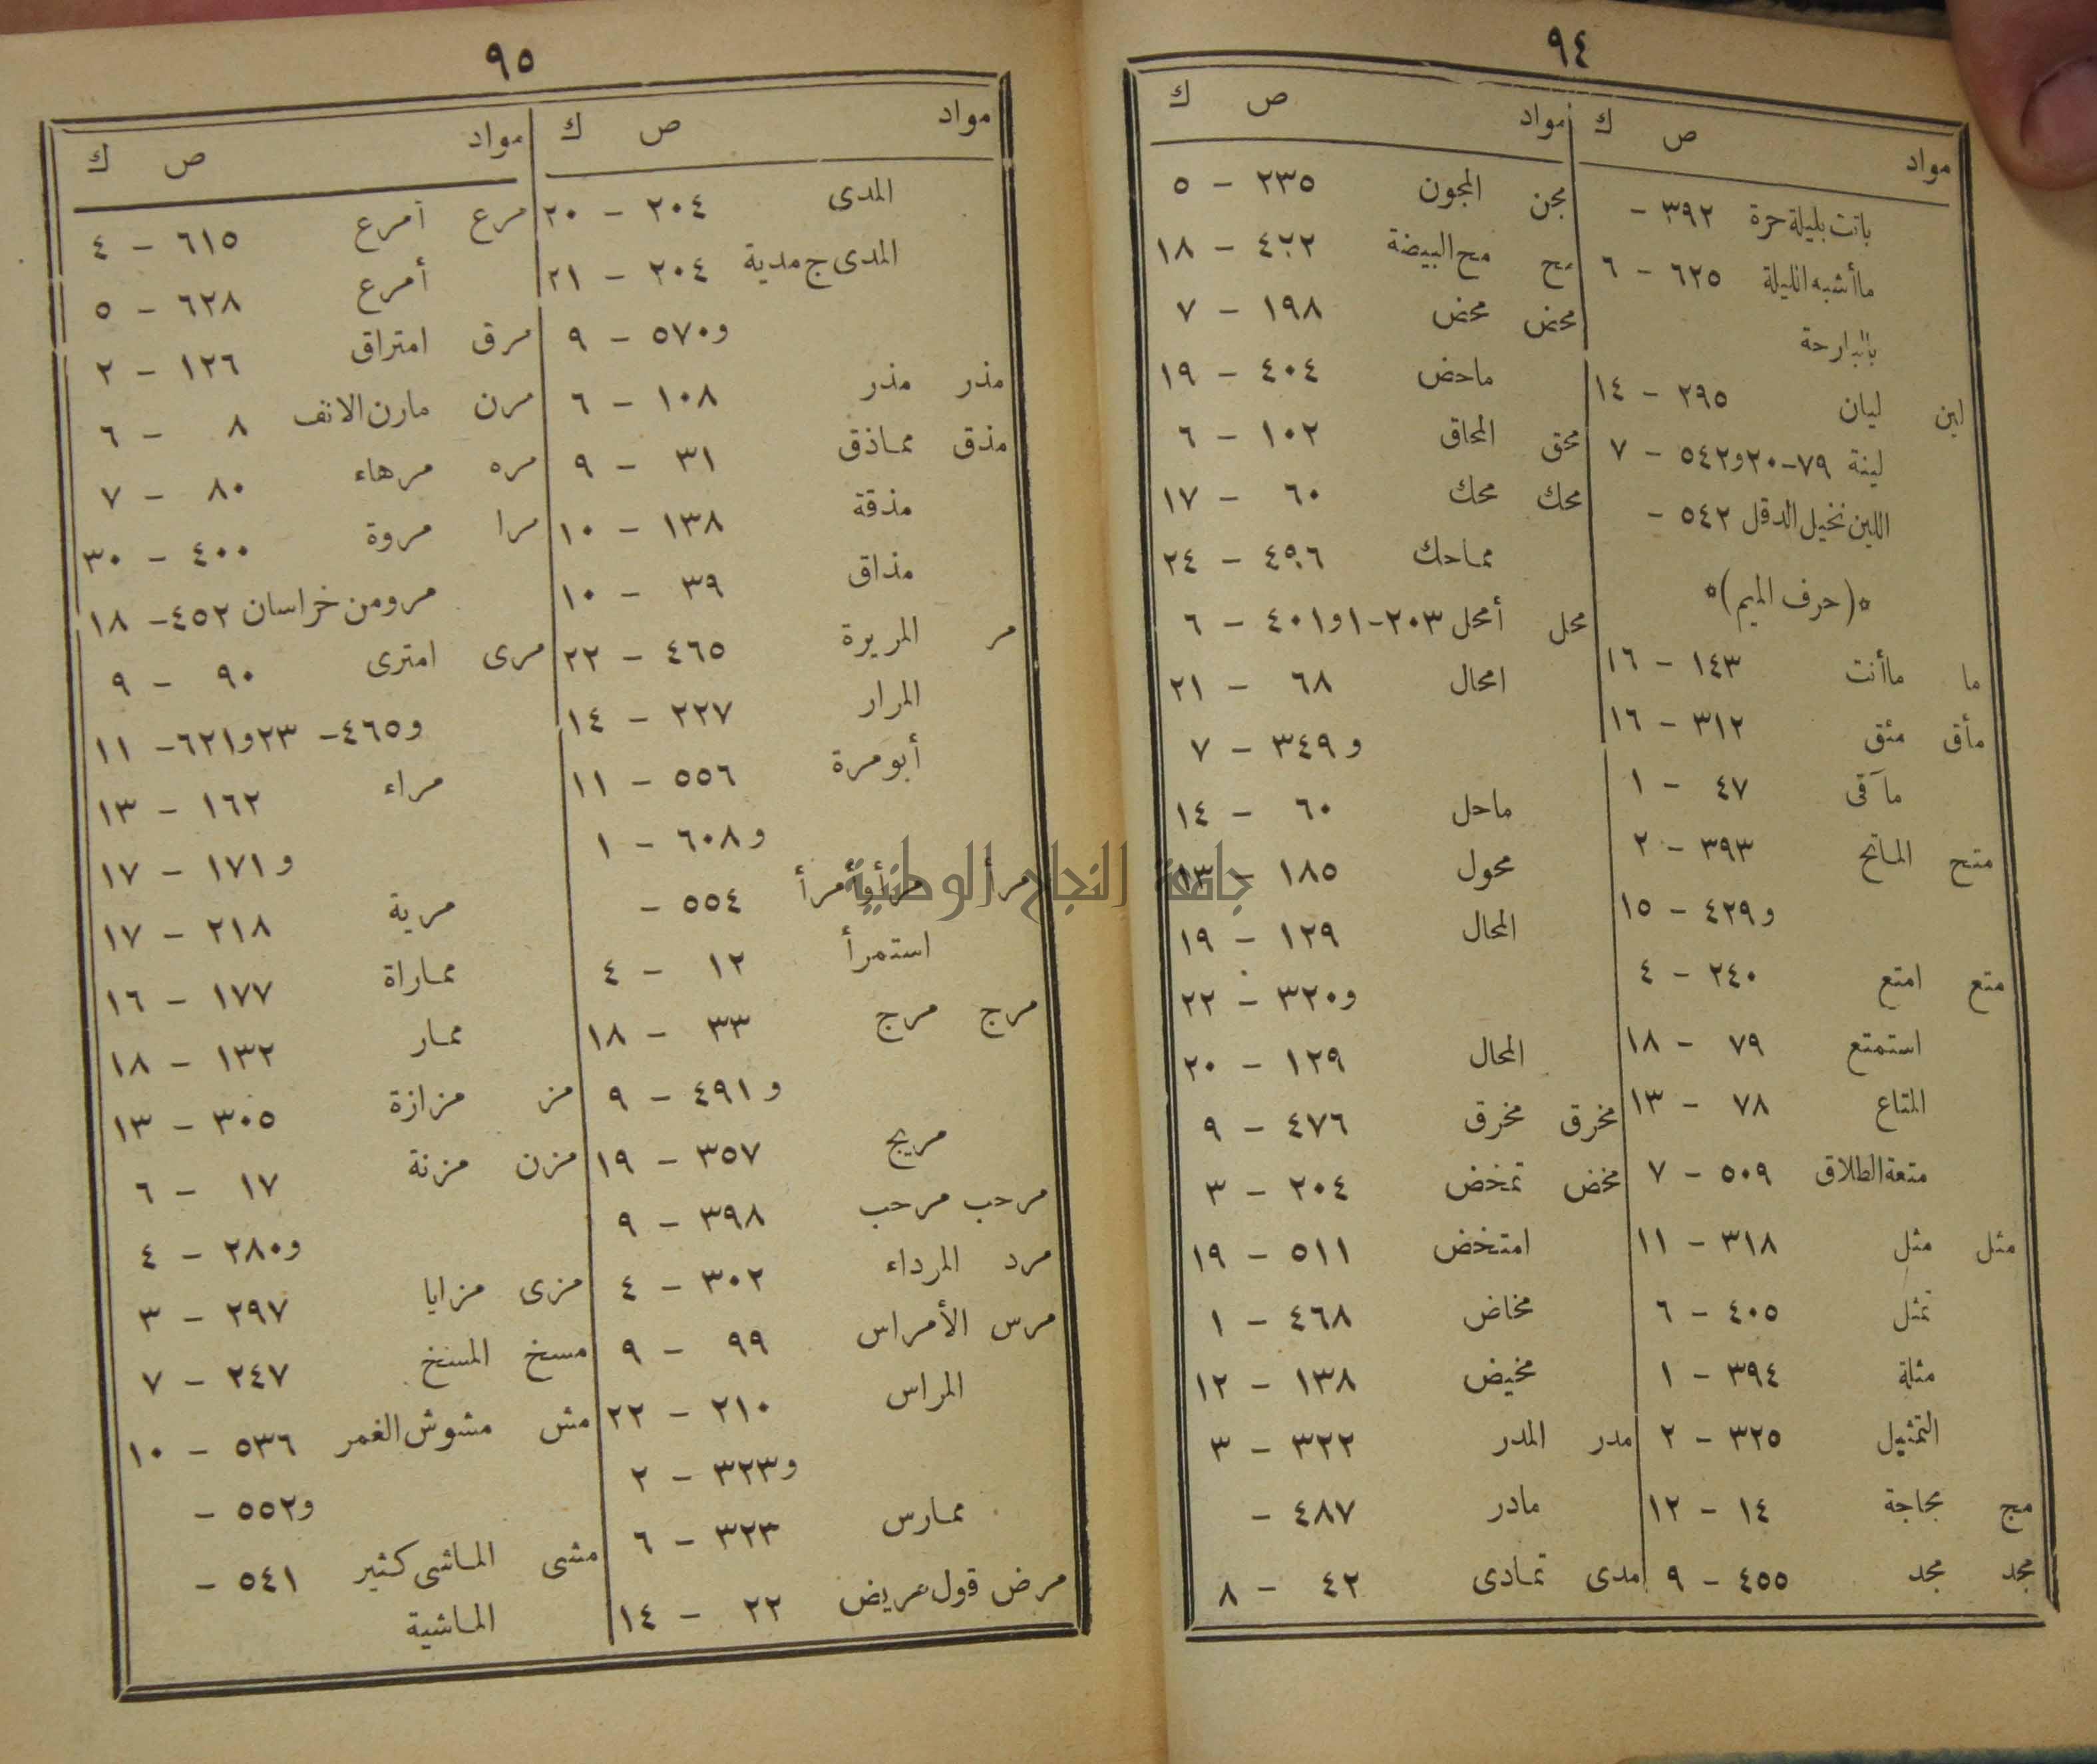 ٩٤
مواد ص ك
باتت بليلة حرة ٣٩٢ –
ما أشبه الليلة ٦٢٥ – ٦
بالبارحة
لين ليان ٢٩٥ – ١٤
لينة ٧٩–٢٠ و٥٤٢ – ٧
اللين نخيل الدقل ٥٤٢ –
*(حرف الميم)*
ما ماأنت ١٤٣ – ١٦
مأق مئق ٣١٢ – ١٦
مآقى ٤٧ – ١
متح الماتح ٣٩٣ – ٢
و٤٢٩ – ١٥
متع امتع ٢٤٠ – ٤
استمتع ٧٩ – ١٨
المتاع ٧٨ – ١٣
متعة الطلاق ٥٠٩ – ٧
مثل مثل ٣١٨ – ١١
تمثل ٤٠٥ – ٦
مثلة ٣٩٤ – ١
التمثيل ٣٢٥ – ٢
مج مجاجة ١٤ – ١٢
مجد مجد ٤٥٥ – ٩
مواد ص ك
مجن المجون ٢٣٥ – ٥
مح مح البيضة ٤٢٢ – ١٨
محض محض ١٩٨ – ٧
ماحض ٤٠٤ – ١٩
محق المحاق ١٠٢ – ٦
محك محك ٦٠ – ١٧
مماحك ٤٥٦ – ٢٤
محل أمحل ٢٠٣–١ و٤٠١ – ٦
امحال ٦٨ – ٢١
و٣٤٩ – ٧
ماحل ٦٠ – ١٤
محول ١٨٥ – ١٣
المحال ١٢٩ – ١٩
و٣٢٠ – ٢٢
المحال ١٢٩ – ٢٠
مخرق مخرق ٤٧٦ – ٩
مخض تمخض ٢٠٤ – ٣
امتخض ٥١١ – ١٩
مخاض ٤٦٨ – ١
مخيض ١٣٨ – ١٢
مدر المدر ٣٢٢ – ٣
مادر ٤٨٧ –
مدى تمادى ٤٢ – ٨
٩٥
مواد ص ك
المدى ٢٠٤ – ٢٠
المدى ج مدية ٢٠٤ – ٢١
و٥٧٠ – ٩
مذر مذر ١٠٨ – ٦
مذق مماذق ٣١ – ٩
مذقة ١٣٨ – ١٠
مذاق ٣٩ – ١٠
مر المريرة ٤٦٥ – ٢٢
المرار ٢٢٧ – ١٤
أبومرة ٥٥٦ – ١١
و٦٠٨ – ١
مرأ مرأ وأمرأ ٥٥٤ –
استمرأ ١٢ – ٤
مرج مرج ٣٣ – ١٨
و٤٩١ – ٩
مريج ٣٥٧ – ١٩
مرحب مرحب ٣٩٨ – ٩
مرد المرداء ٣٠٢ – ٤
مرس الأمراس ٩٩ – ٩
المراس ٢١٠ – ٢٢
و٣٢٣ – ٢
ممارس ٣٢٣ – ٦
مرض قول مريض ٢٢ – ١٤
مواد ص ك
مرع أمرع ٦١٥ – ٤
أمرع ٦٢٨ – ٥
مرق امتراق ١٢٦ – ٢
مرن مارن الانف ٨ – ٦
مره مرهاء ٨٠ – ٧
مرا مروة ٤٠٠ – ٣٠
مرومن خراسان ٤٥٢– ١٨
مرى امترى ٩٠ – ٩
و٤٦٥– ٢٣ و٦٢١– ١١
مراء ١٦٢ – ١٣
و١٧١ – ١٧
مرية ٢١٨ – ١٧
مماراة ١٧٧ – ١٦
ممار ١٣٢ – ١٨
مز مزازة ٣٠٥ – ١٣
مزن مزنة ١٧ – ٦
و٢٨٠ – ٤
مزى مزايا ٢٩٧ – ٣
مسخ المسخ ٢٤٧ – ٧
مش مشوش الغمر ٥٣٦ – ١٠
و٥٥٢ –
مشى الماشى كثير ٥٤١ –
الماشية
جامعة النجاح الوطنية